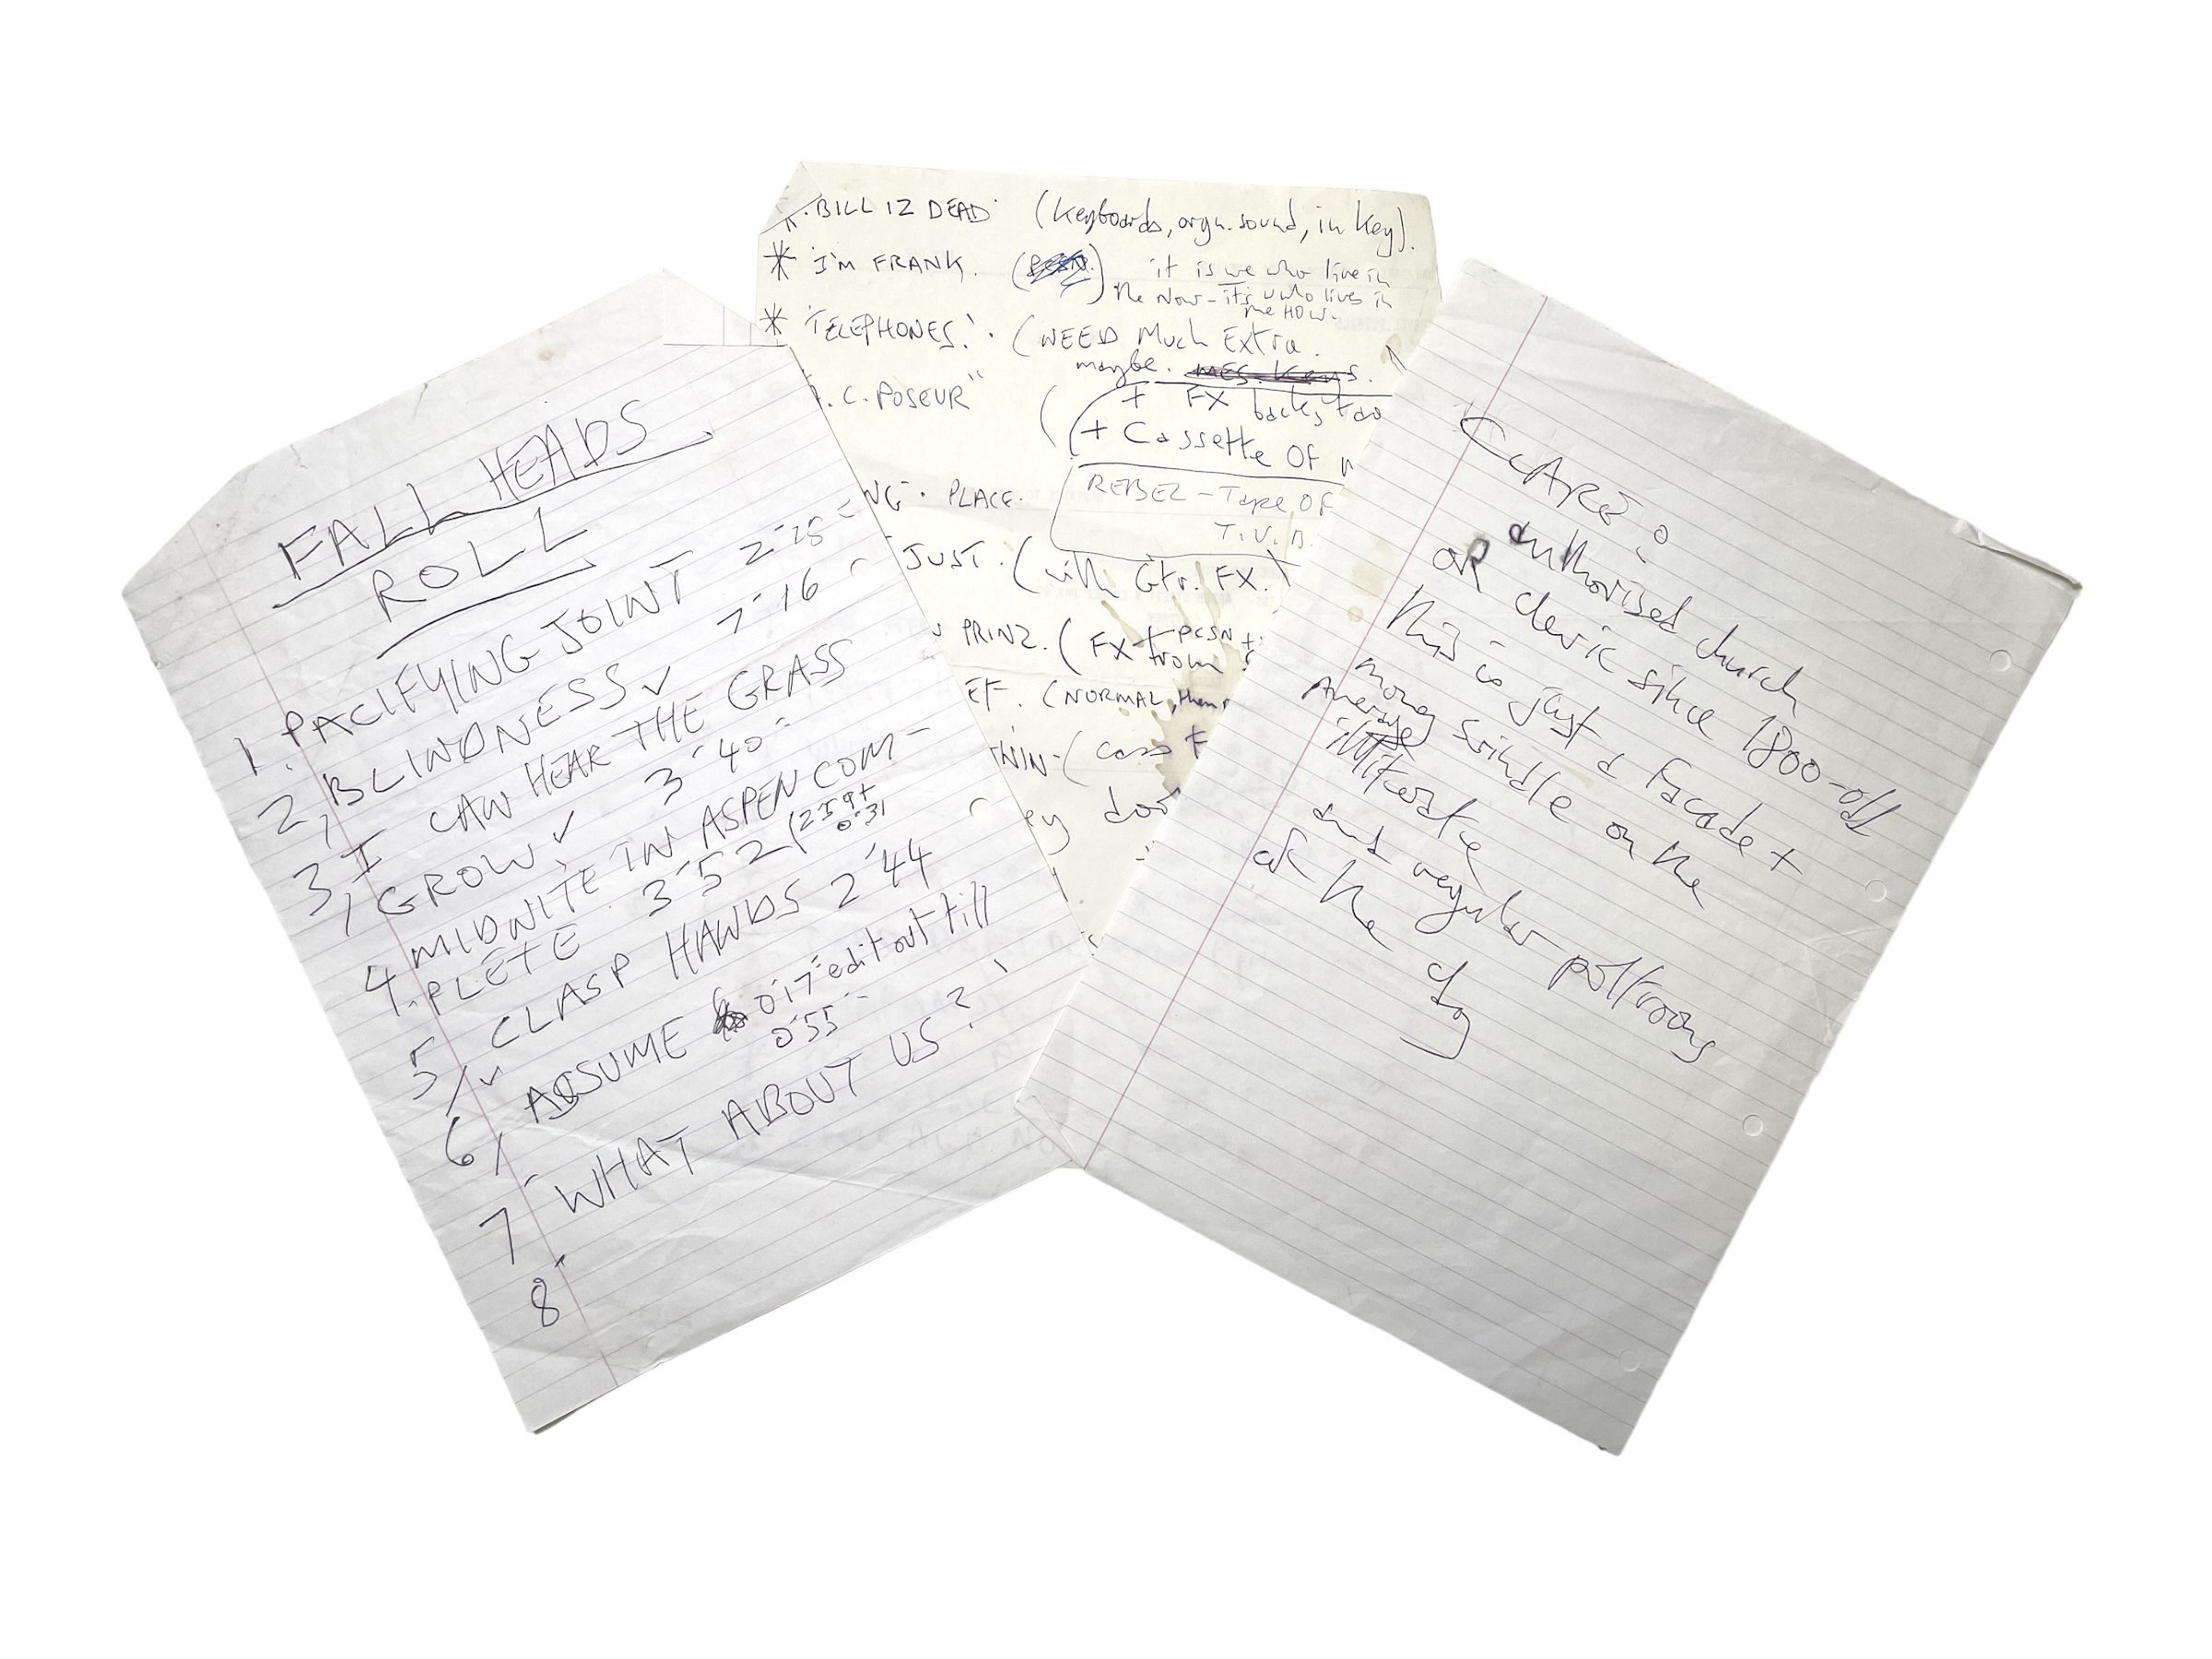 FALL HEADS
ROLL
1. PACIFYING JOINT 2"28
2, BLINDNESS ✓ 7"16
3, I CAN HEAR THE GRASS
GROW ✓ 3"40"
4. MIDNITE IN ASPEN COM-
PLETE 3"52 (2"59+
0"31
5, ✓ CLASP HANDS 2"44
6, ASSUME 0"17" edit out till
0"55"
7 WHAT ABOUT US?
8.
*. BILL IZ DEAD (Keyboards, orgn. sound, in key).
* I'M FRANK. it is we who live in
the Now - it's u who lives in
the HOW.
* 'TELEPHONES'. (NEED Much Extra.
maybe. MES. Keys.
.C. POSEUR" (+ FX backs tao
+ Cassette OF
NG. PLACE.
REBEL - Tape OF
T.V.
JUST. (with Gtr. FX.)
PRINZ. (FX from PCSN
EF. (NORMAL, then
THIN - (cass
ey doo
authorised church
OR cleric since 1800-odd
this is just a facade +
money swindle on the
Average illiterate
and regular poltroons
of the day